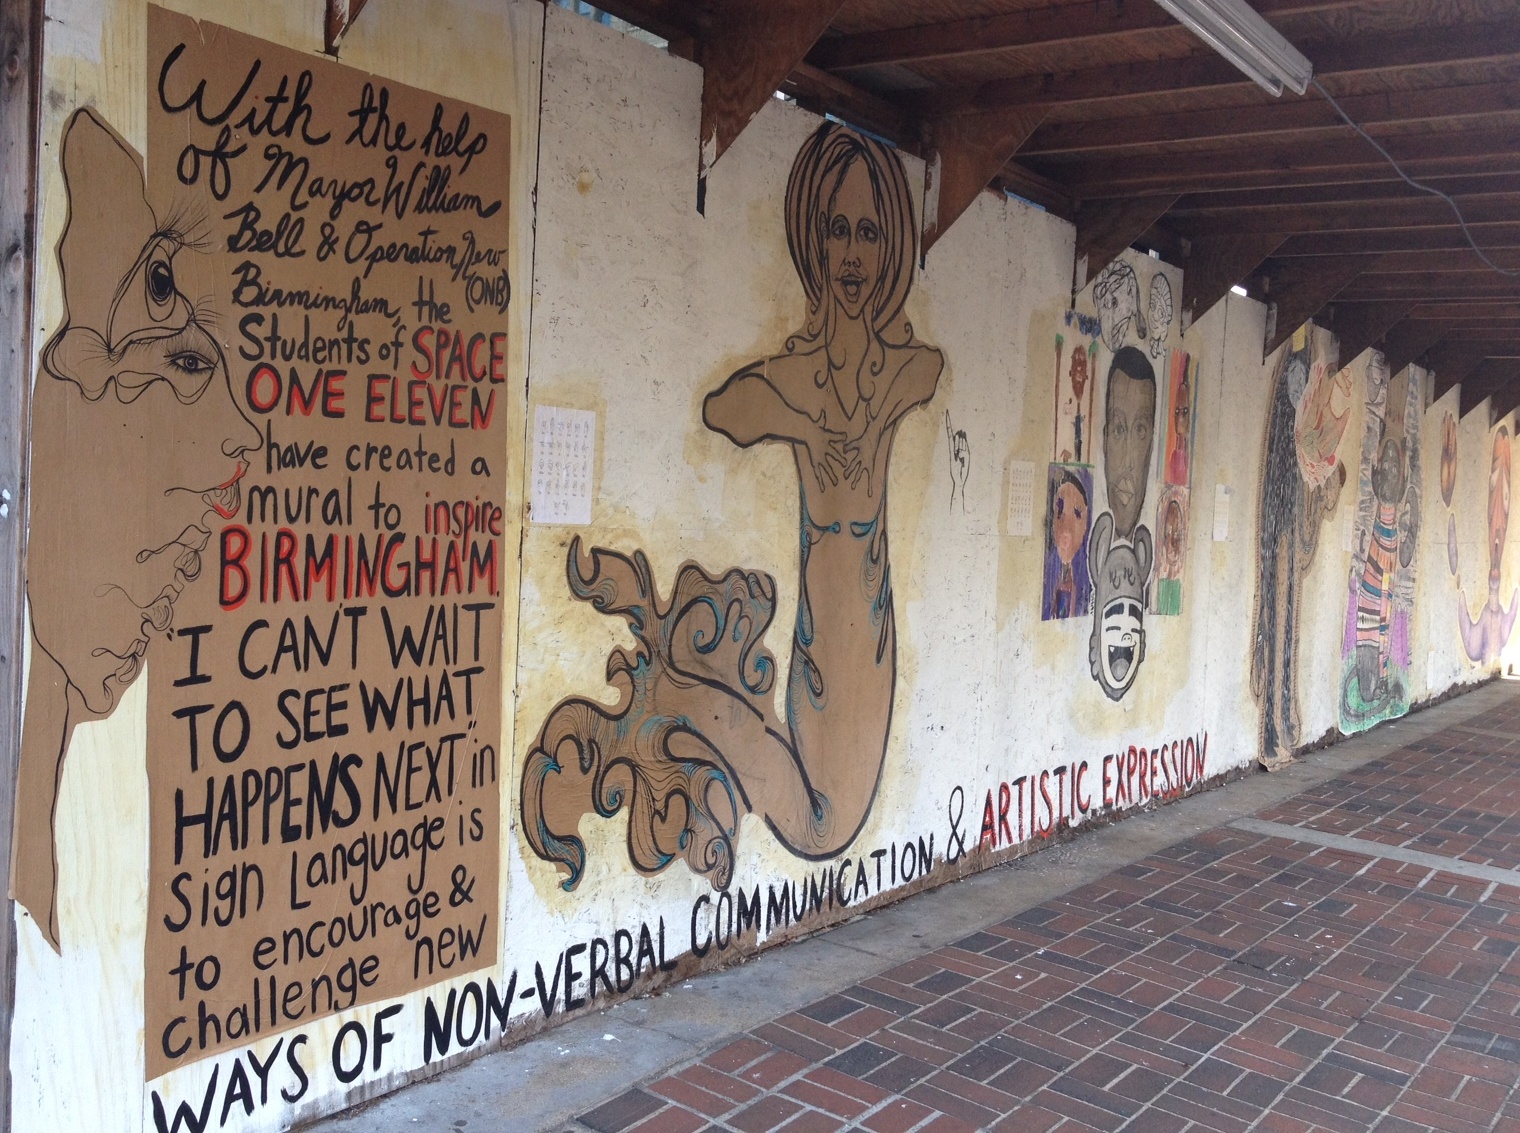 With the help
of Mayor William
Bell & Operation New
Birmingham, the (ONB)
Students of SPACE
ONE ELEVEN
have created a
mural to inspire
BIRMINGHAM.
"I CAN'T WAIT
TO SEE WHAT
HAPPENS NEXT" in
sign Language is
to encourage &
challenge new
WAYS OF NON-VERBAL COMMUNICATION & ARTISTIC EXPRESSION